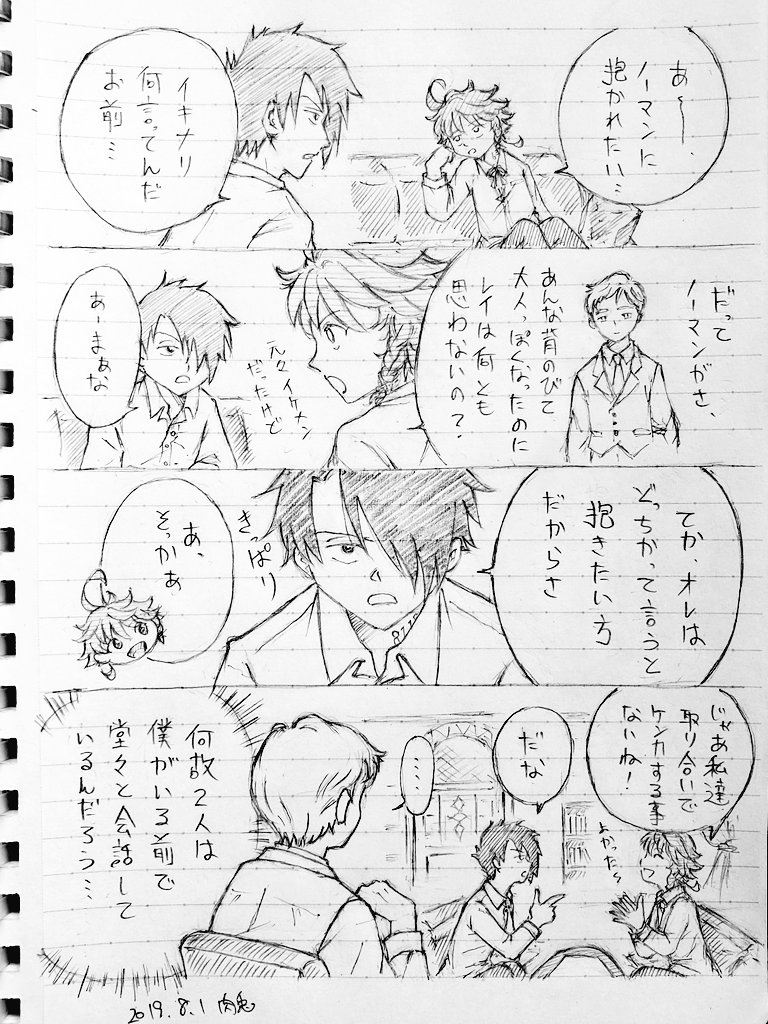 あ〜〜、
ノーマンに
抱かれたい…
イキナリ
何言ってんだ
お前…
だって
ノーマンがさ、
あんな背のびて
大人っぽくなったのに
レイは何とも
思わないの？
元々イケメン
だったけど
あーまぁな
てか、オレは
どっちかって言うと
抱きたい方
だからさ
きっぱり
あ、
そっかぁ
じゃあ私達
取り合いで
ケンカする事
ないね！
よかった〜
だな
……
何故2人は
僕がいる前で
堂々と会話して
いるんだろう…
2019.8.1 肉兎